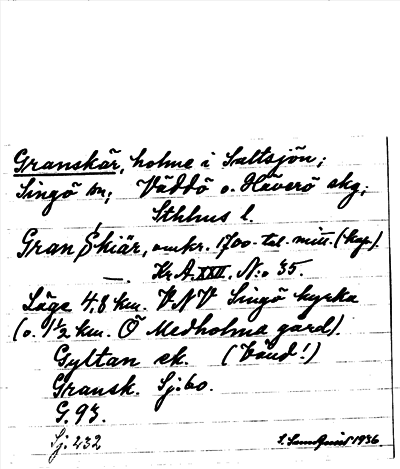 Granskär, holme i Saltsjön;
Singö sn; Väddö o. Häverö skg;
Sthlms l.
Gran Skiär, omkr. 1700-tal. mitt. (kop).
— Kr.A. XXII. N:o 35.
Läge 4,8 km. VNV Singö kyrka
(o. 1½ km. Ö Medholma gård).
Gyltan ek. (bånd!)
Gransk. Sj: 60.
G. 93.
Sj: 232
S. Sundquist 1936